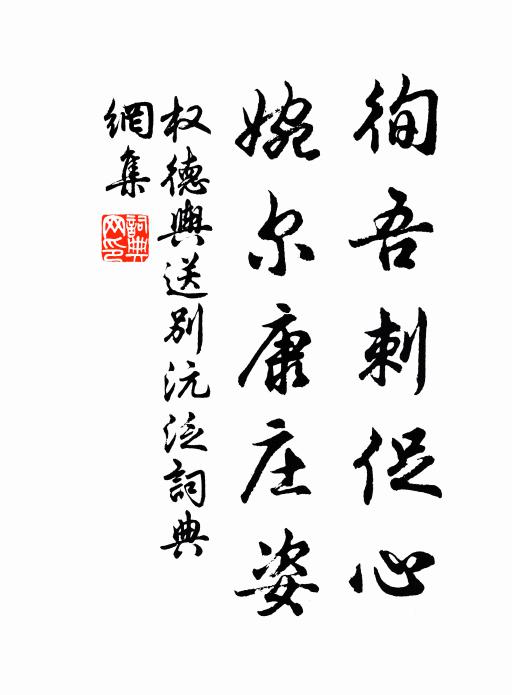 徇吾刺促心
婉尔康庄姿
权德舆送别沅泛詞典
網集
詞典网印